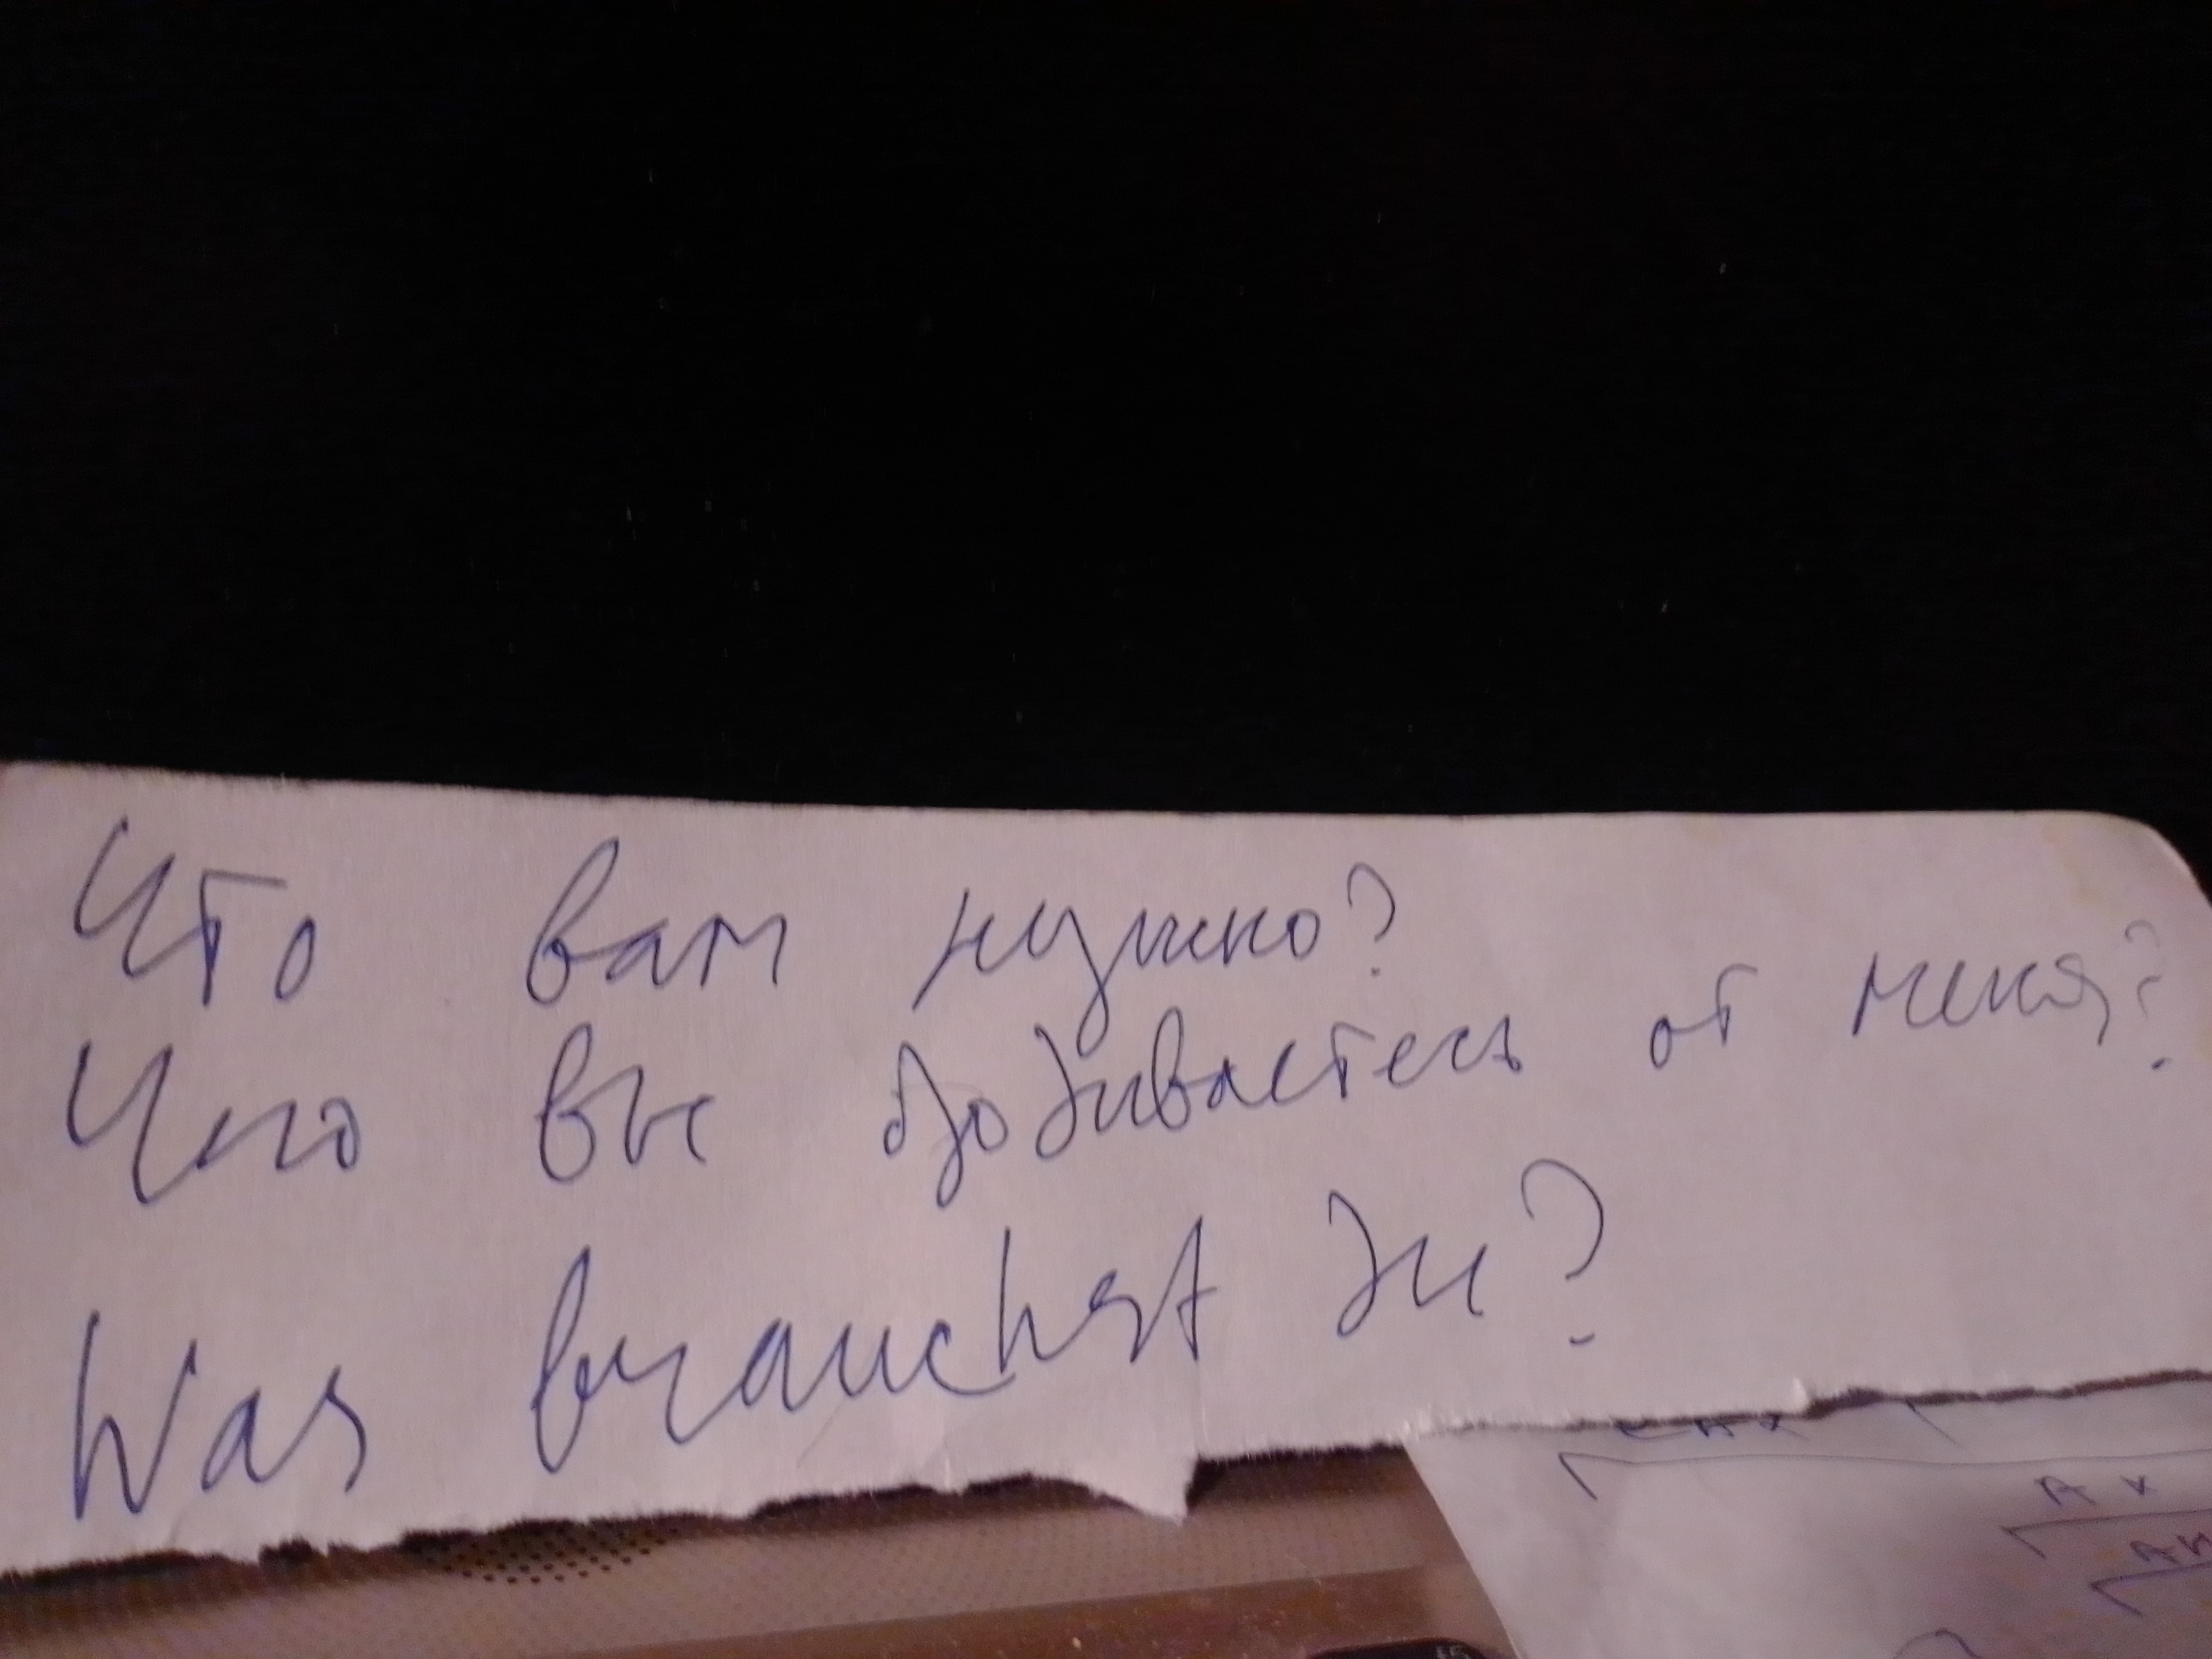 Что вам нужно?
Чего вы добиваетесь от меня?
Was brauchst du?
АК